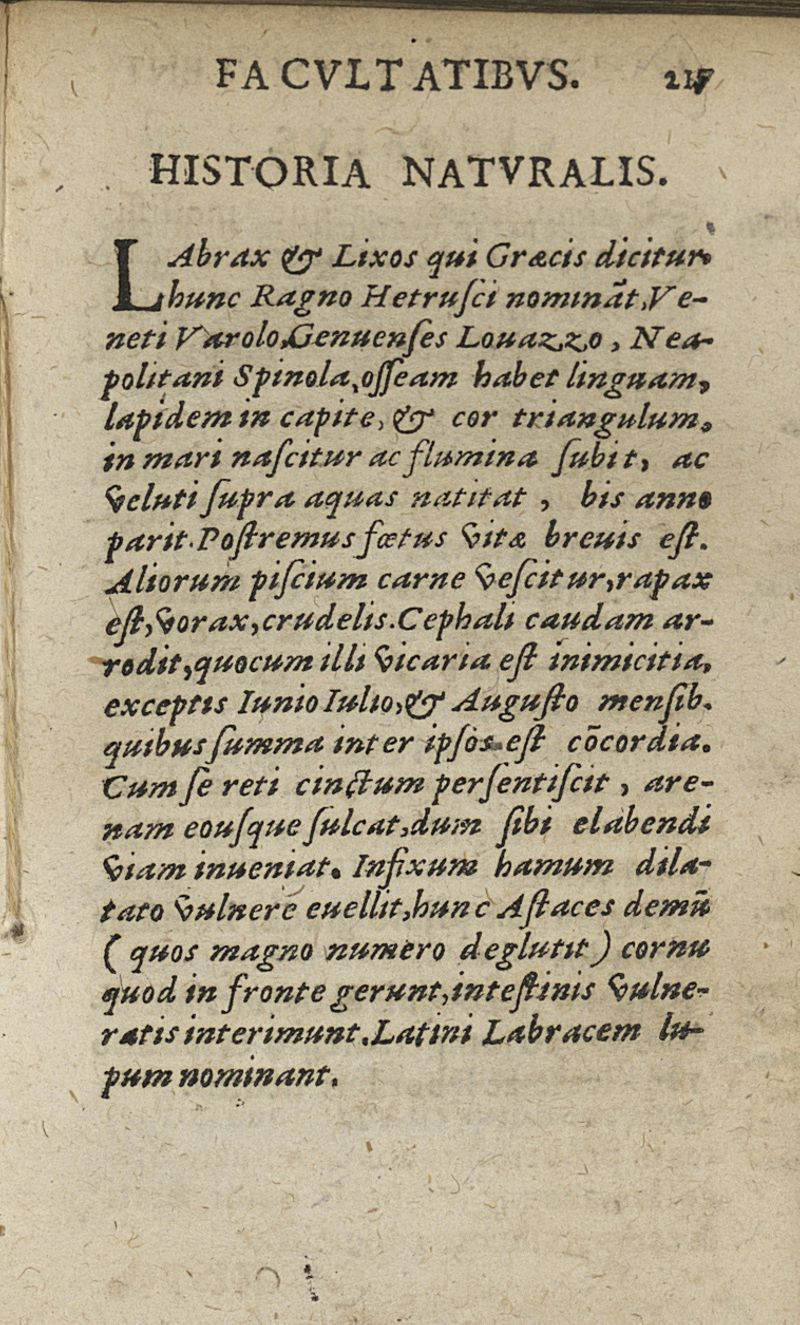 FACVLTATIBVS. 217
HISTORIA NATVRALIS.
LAbrax & Lixos qui Græcis dicitur,
hunc Ragno Hetruſci nominãt, Ve-
neti Varolo, Genuenſes Louazzo, Nea-
politani Spinola, oſſeam habet linguam,
lapidem in capite, & cor triangulum.
in mari naſcitur ac flumina ſubit, ac
veluti ſupra aquas natitat, bis anno
parit. Poſtremus fœtus vitæ breuis eſt.
Aliorum piſcium carne veſcitur, rapax
eſt, vorax, crudelis. Cephali caudam ar-
rodit, quocum illi vicaria eſt inimicitia,
exceptis Iunio Iulio, & Auguſto menſib.
quibus ſumma inter ipſos eſt cõcordia.
Cum ſe reti cinctum perſentiſcit, are-
nam eouſque ſulcat, dum ſibi elabendi
viam inueniat. Infixum hamum dila-
tato vulnere euellit, hunc Aſtaces demũ
(quos magno numero deglutit) cornu
quod in fronte gerunt, inteſtinis vulne-
ratis interimunt. Latini Labracem lu-
pum nominant.